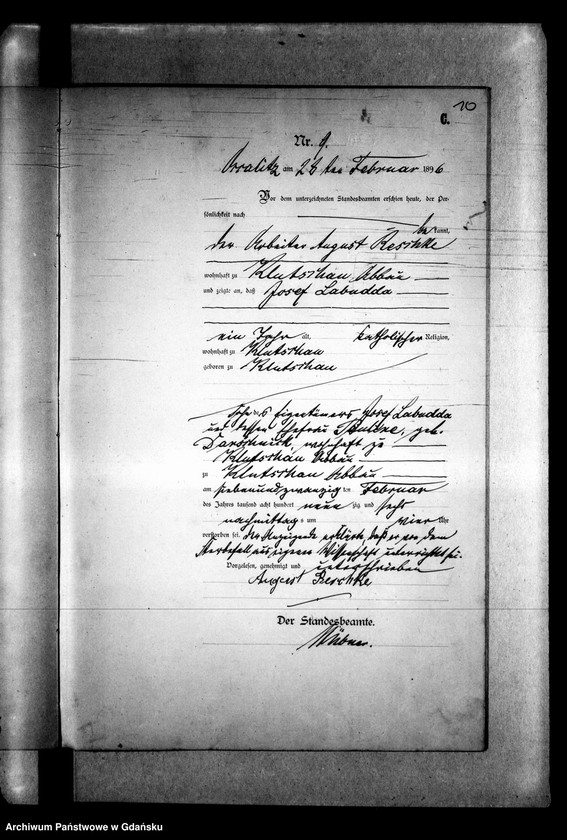 10
C.
Nr. 9.
am 28 ten Februar 1896
Vor dem unterzeichneten Standesbeamten erschien heute, der Per-
sönlichkeit nach
bekannt,
der Arbeiter August Reschke
wohnhaft zu Klutschau Abbau
und zeigte an, daß Josef Labudda
ein Jahr alt, katholischer Religion,
wohnhaft zu Klutschau
geboren zu Klutschau
Sohn des Eigentümers Josef Labudda
und dessen Ehefrau geb.
wohnhaft zu
Klutschau Abbau
zu Klutschau Abbau
am siebenundzwanzig ten Februar
des Jahres tausend acht hundert neun zig und sechs
nachmittags um vier Uhr
verstorben sei. Der Anzeigende erklärte, daß er von dem
Sterbefall aus eigener Wissenschaft unterrichtet sei.
Vorgelesen, genehmigt und unterschrieben
August Reschke
Der Standesbeamte.
Archiwum Państwowe w Gdańsku